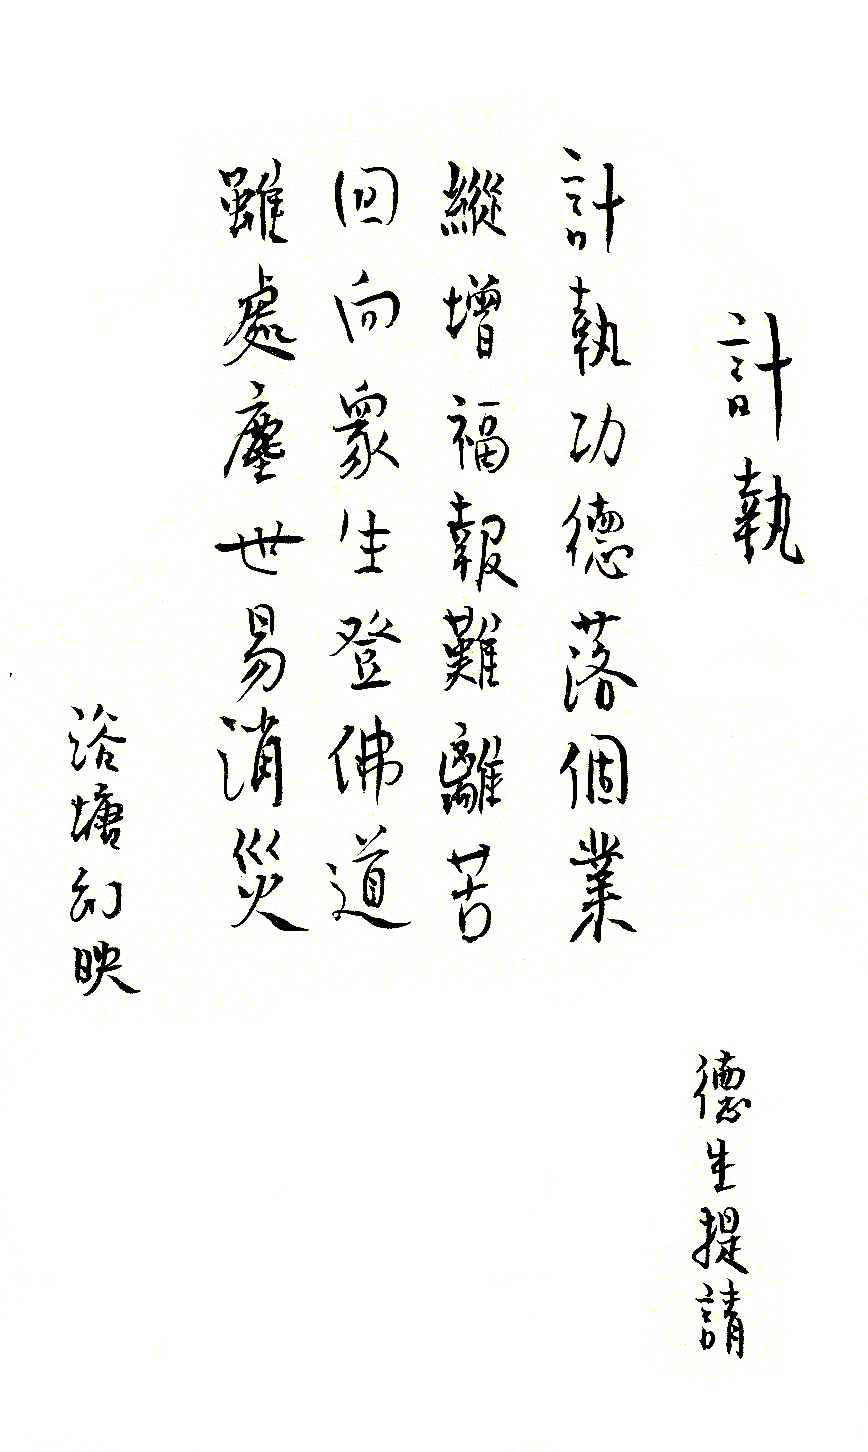 計執
計執功德落個業
縱增福報難離苦
回向眾生登佛道
雖處塵世易消災
浴塘幻映
德生提請